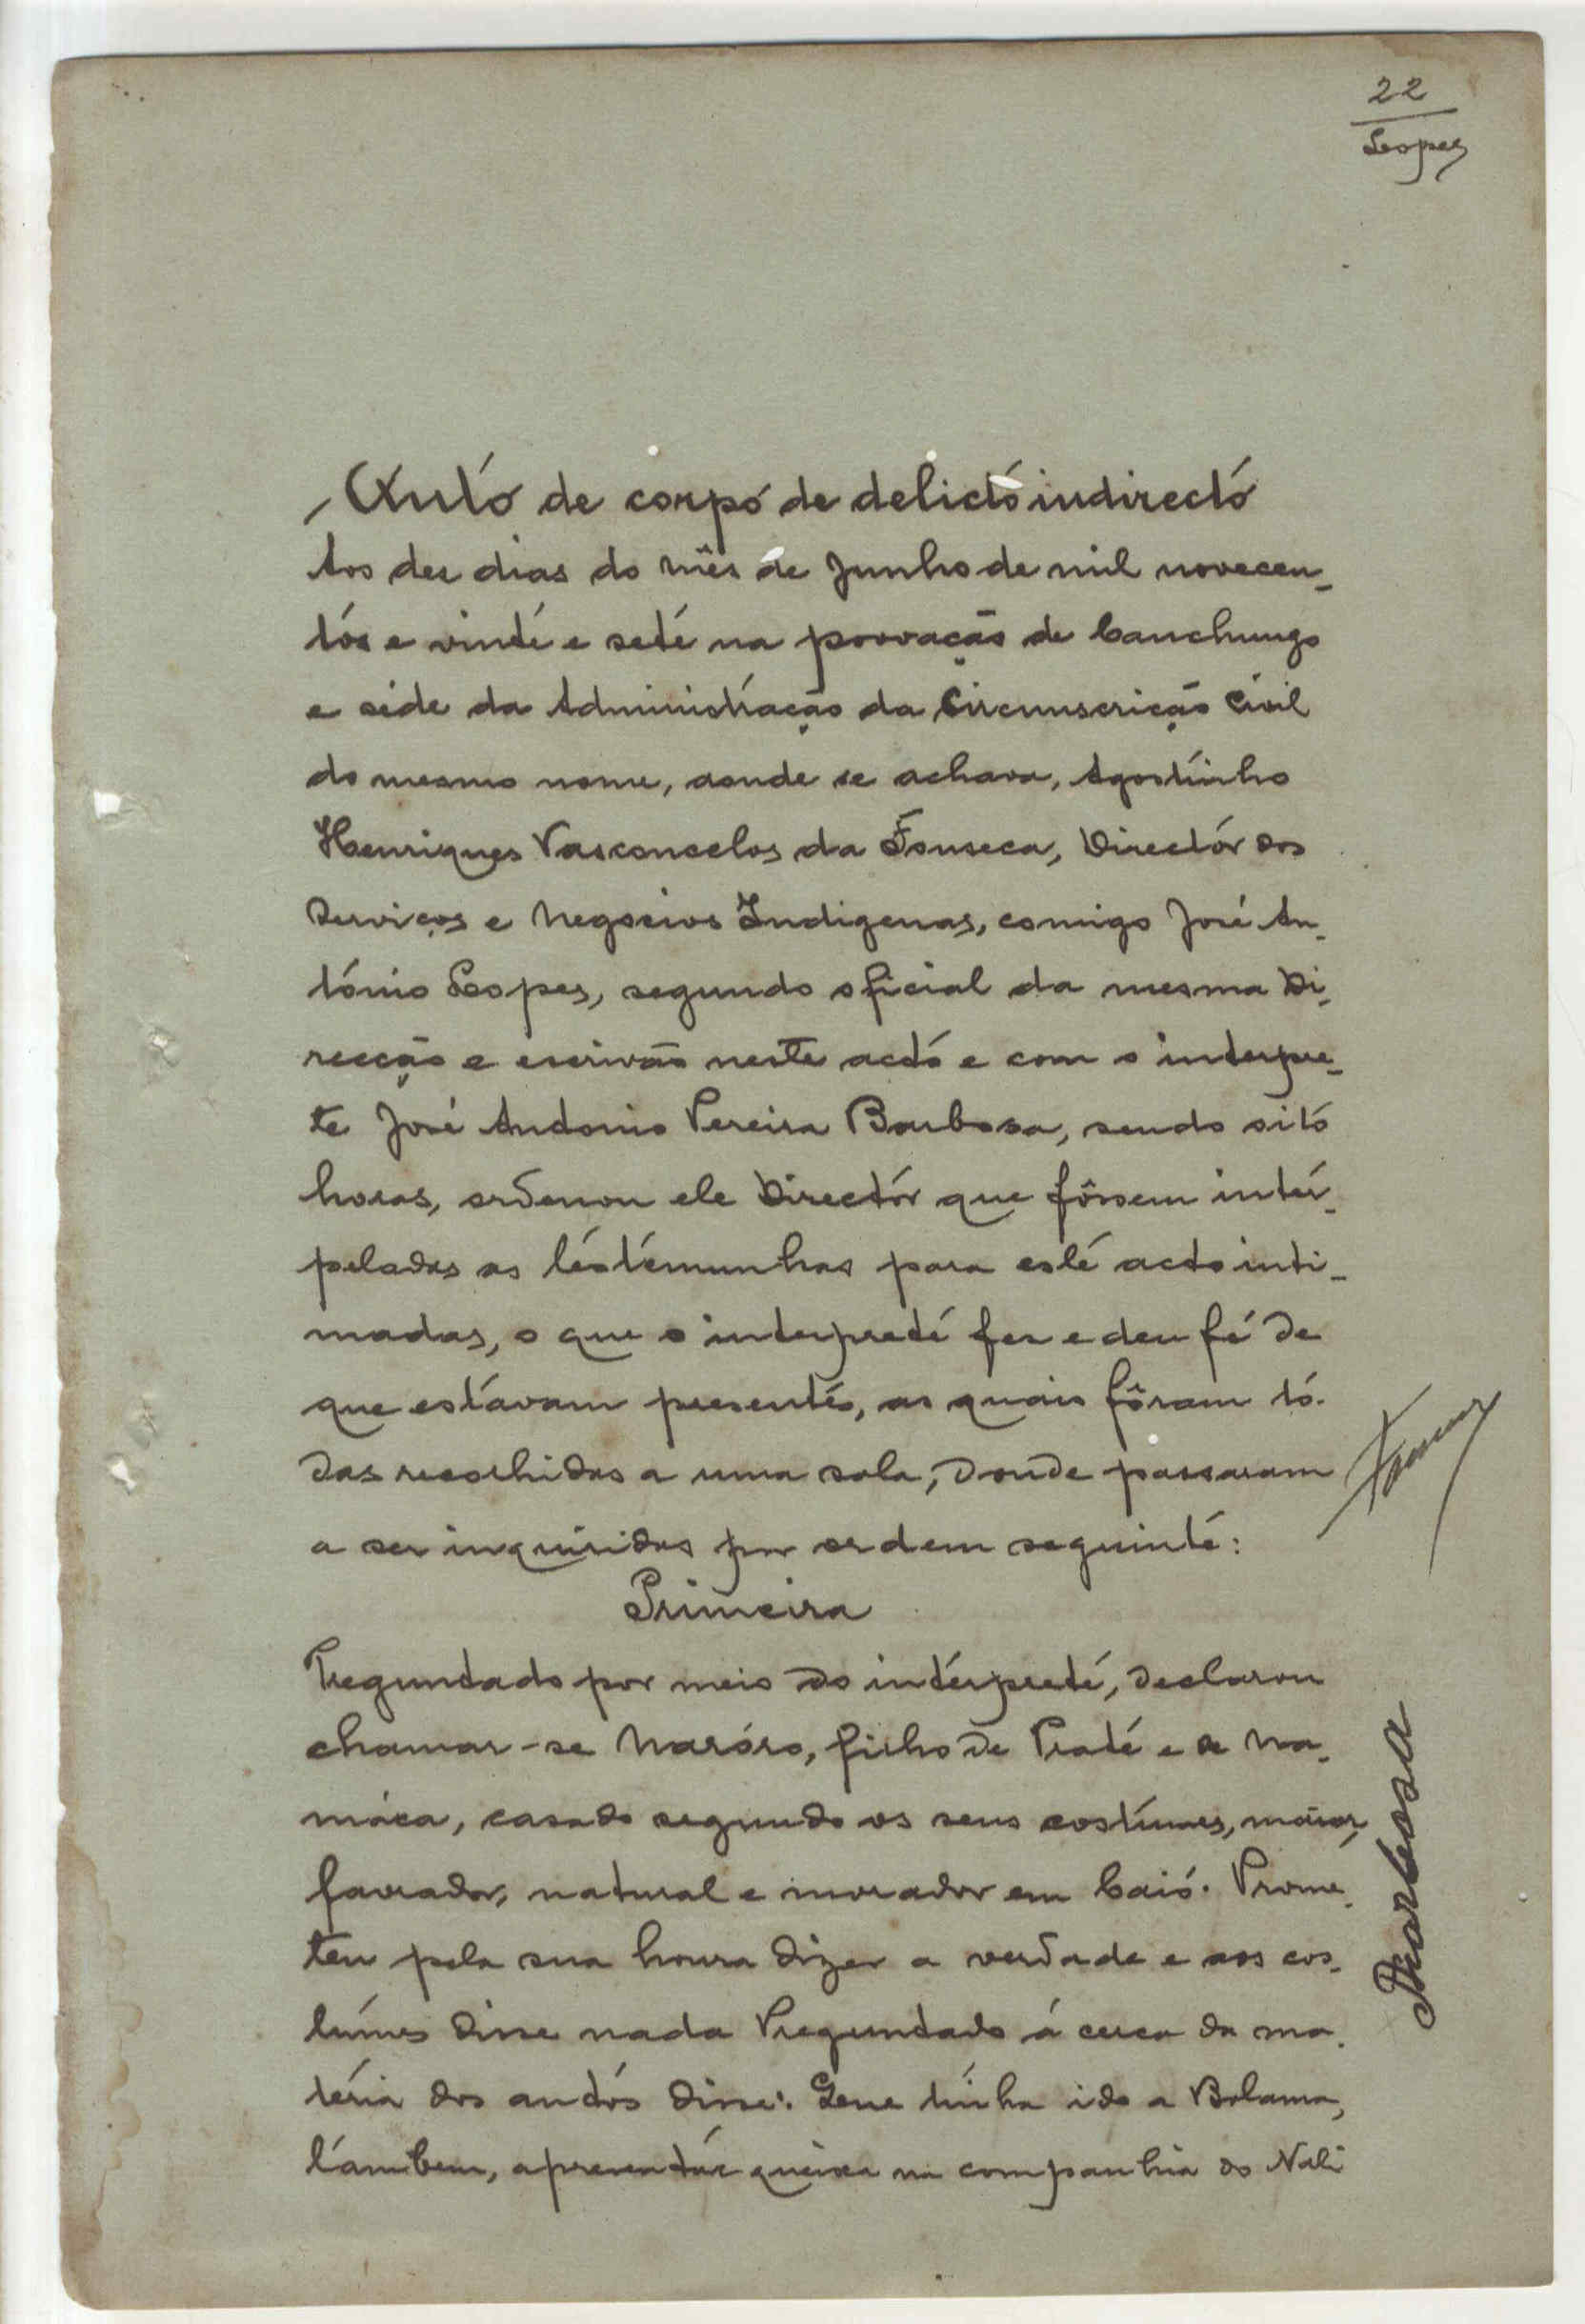 22
Lopes
Auto de corpo de delicto indirecto
Aos dez dias do mês de Junho de mil novecen-
tos e vinte e sete na povoação de Canchungo
e séde da Administração da Circunscrição Civil
do mesmo nome, aonde se achava, Agostinho
Henriques Vasconcelos da Fonseca, Director dos
Serviços e Negocios Indigenas, comigo José An-
tónio Lopes, segundo oficial da mesma Di-
recção e escrivão neste acto e com o interpre-
te José Antonio Pereira Barbosa, sendo oito
horas, ordenou ele Director que fôssem inter-
peladas as testemunhas para este acto inti-
madas, o que o interprete fez e deu fé de
que estavam presentes, as quais fôram to-
das recolhidas a uma sala, donde passaram
a ser inquiridas por ordem seguinte:
Primeira
Preguntado por meio do intérprete, declarou
chamar-se Naróro, filho de Praté e de Na-
máca, casado segundo os seus costumes, maior,
lavrador, natural e morador em Caió. Prome-
teu pela sua honra dizer a verdade e aos cos-
tumes disse nada Preguntado á cerca da ma-
téria dos autos disse: Que tinha ido a Bolama,
tambem, apresentar queixa na companhia do Nali
Barbosa